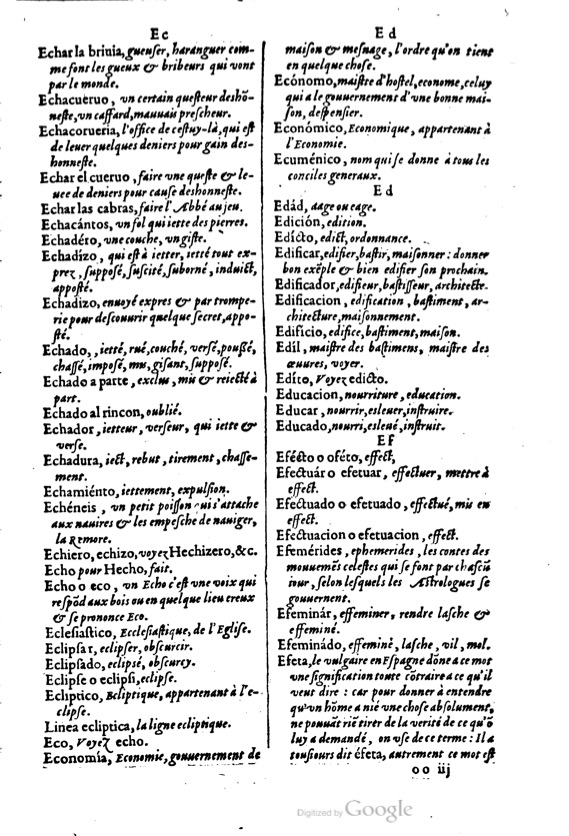 Ec
Echar la briuia, gueuser, haranguer com-
me font les gueux & bribeurs qui vont
par le monde.
Echacueruo, vn certain questeur deshō-
neste, vn caffard, mauuais prescheur.
Echacorueria, l'office de cestuy-là, qui est
de leuer quelques deniers pour gain des-
honneste.
Echar el cueruo, faire vne queste & le-
uee de deniers pour cause deshonneste.
Echar las cabras, faire l'Abbé au jeu.
Echacántos, vn fol qui iette des pierres.
Echadéro, vne couche, vn giste.
Echadízo, qui est à ietter, ietté tout ex-
prez, supposé, suscité, suborné, induict,
apposté.
Echadizo, enuoyé expres & par trompe-
rie pour descouurir quelque secret, appo-
sté.
Echado, , ietté, rué, couché, versé, poußé,
chassé, imposé, mus, gisant, supposé.
Echado a parte, exclus, mis & reietté à
part.
Echado al rincon, oublié.
Echador, ietteur, verseur, qui iette &
verse.
Echadura, iect, rebut, tirement, chasse-
ment.
Echamiénto, iettement, expulsion.
Echéneis, vn petit poisson qui s'attache
aux nauires & les empesche de nauiger,
la Remore.
Echiero, echizo, voyez Hechizero, &c.
Echo pour Hecho, fait.
Echo o eco, vn Echo c'est vne voix qui
respōd aux bois ou en quelque lieu creux
& se prononce Eco.
Eclesiastico, Ecclesiastique, de l'Eglise.
Eclipsar, eclipser, obscurcir.
Eclipsado, eclipsé, obscurcy.
Eclipse o eclipsi, eclipse.
Ecliptico, Ecliptique, appartenant à l'e-
clipse.
Linea ecliptica, la ligne ecliptique.
Eco, Voyez echo.
Economía, Economie, gouuernement de
Ed
maison & mesnage, l'ordre qu'on tient
en quelque chose.
Ecónomo, maistre d'hostel, econome, celuy
qui a le gouuernement d'vne bonne mai-
son, despensier.
Económico, Economique, appartenant à
l'Economie.
Ecuménico, nom qui se donne à tous les
conciles generaux.
Ed
Edád, aage ou eage.
Edición, edition.
Edícto, edict, ordonnance.
Edificar, edifier, bastir, maisonner: donner
bon exẽple & bien edifier son prochain.
Edificador, edifieur, bastisseur, architecte.
Edificacion, edification, bastiment, ar-
chitecture, maisonnement.
Edificio, edifice, bastiment, maison.
Edíl, maistre des bastimens, maistre des
œuures, voyer.
Edíto, Voyez edicto.
Educacion, nourriture, education.
Educar, nourrir, esleuer, instruire.
Educado, nourri, esleué, instruit.
Ef
Eféćto o oféto, effect,
Efectuár o efetuar, effectuer, mettre à
effect.
Efectuado o efetuado, effectué, mis en
effect.
Efectuacion o efetuacion, effect.
Efemérides, ephemerides, les contes des
mouuemēs celestes qui se font par chascū
iour, selon lesquels les Astrologues se
gouuernent.
Efeminár, effeminer, rendre lasche &
effeminé.
Efeminádo, effeminé, lasche, vil, mol.
Efeta, le vulgaire en Espagne dōne a ce mot
vne signification toute cōtraire a ce qu'il
veut dire : car pour donner à entendre
qu'vn hōme a nié vne chose absolument,
ne pouuāt riē tirer de la verité de ce qu'ō
luy a demandé, on vse de ce terme : Il a
tousiours dit éfeta, autrement ce mot est
oo iij
Digitized by Google